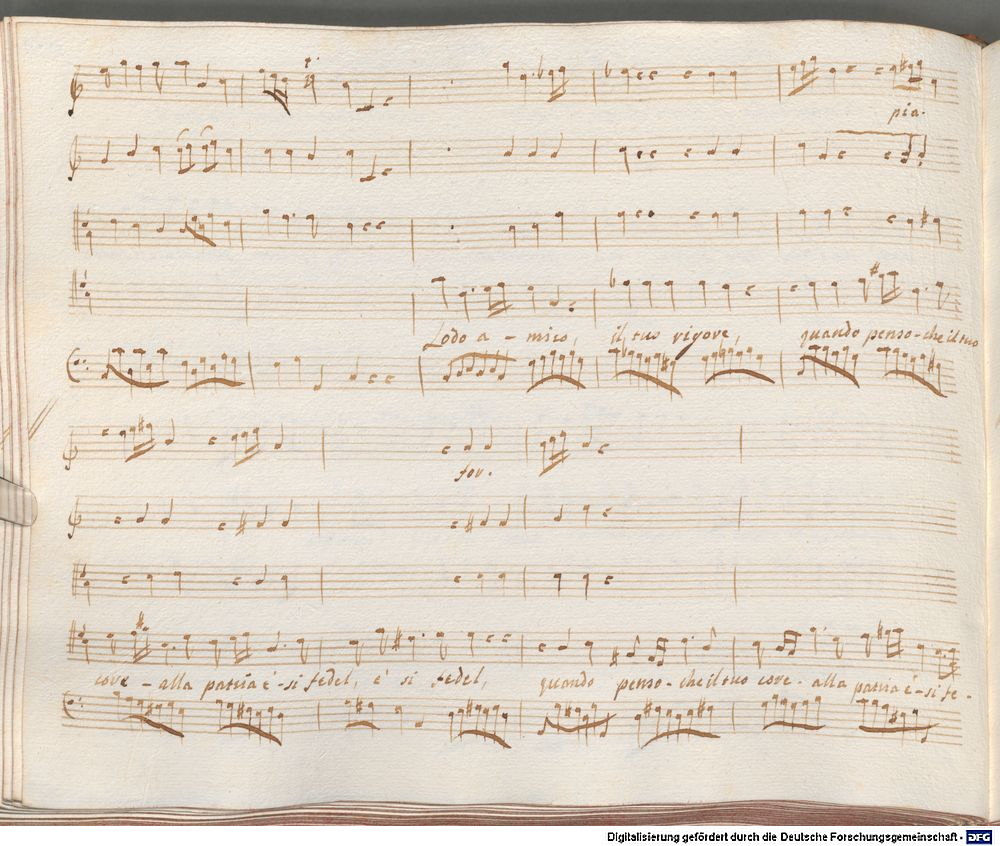 pia.
Lodo a - mico, il tuo rigore, quando penso - che il tuo
for.
core - alla patria è - si fedel, e' si fedel, quando penso - che il tuo core - alla patria è - si fe -
Digitalisierung gefördert durch die Deutsche Forschungsgemeinschaft - DFG